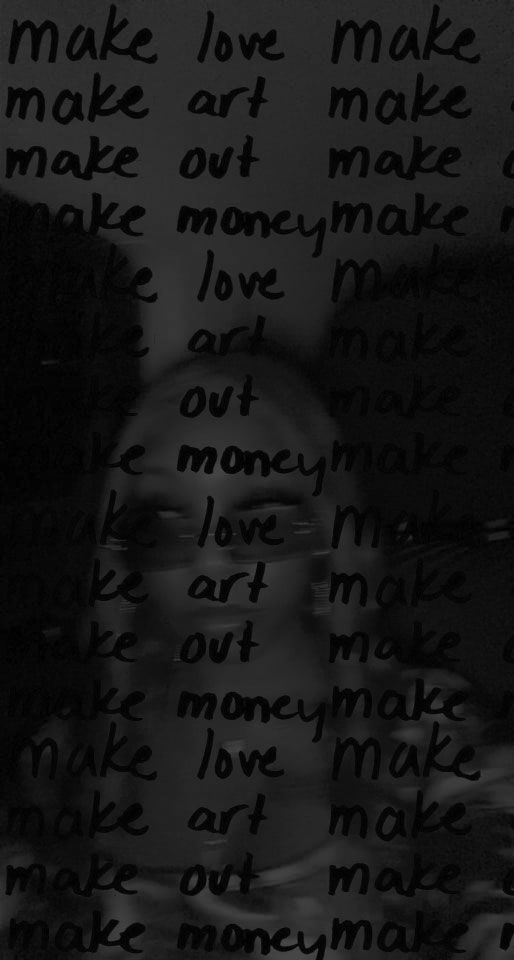 make love make
make art make
make out make
make money make
make love make
make art make
make out make
make money make
make love make
make art make
make out make
make money make
make love make
make art make
make out make
make money make